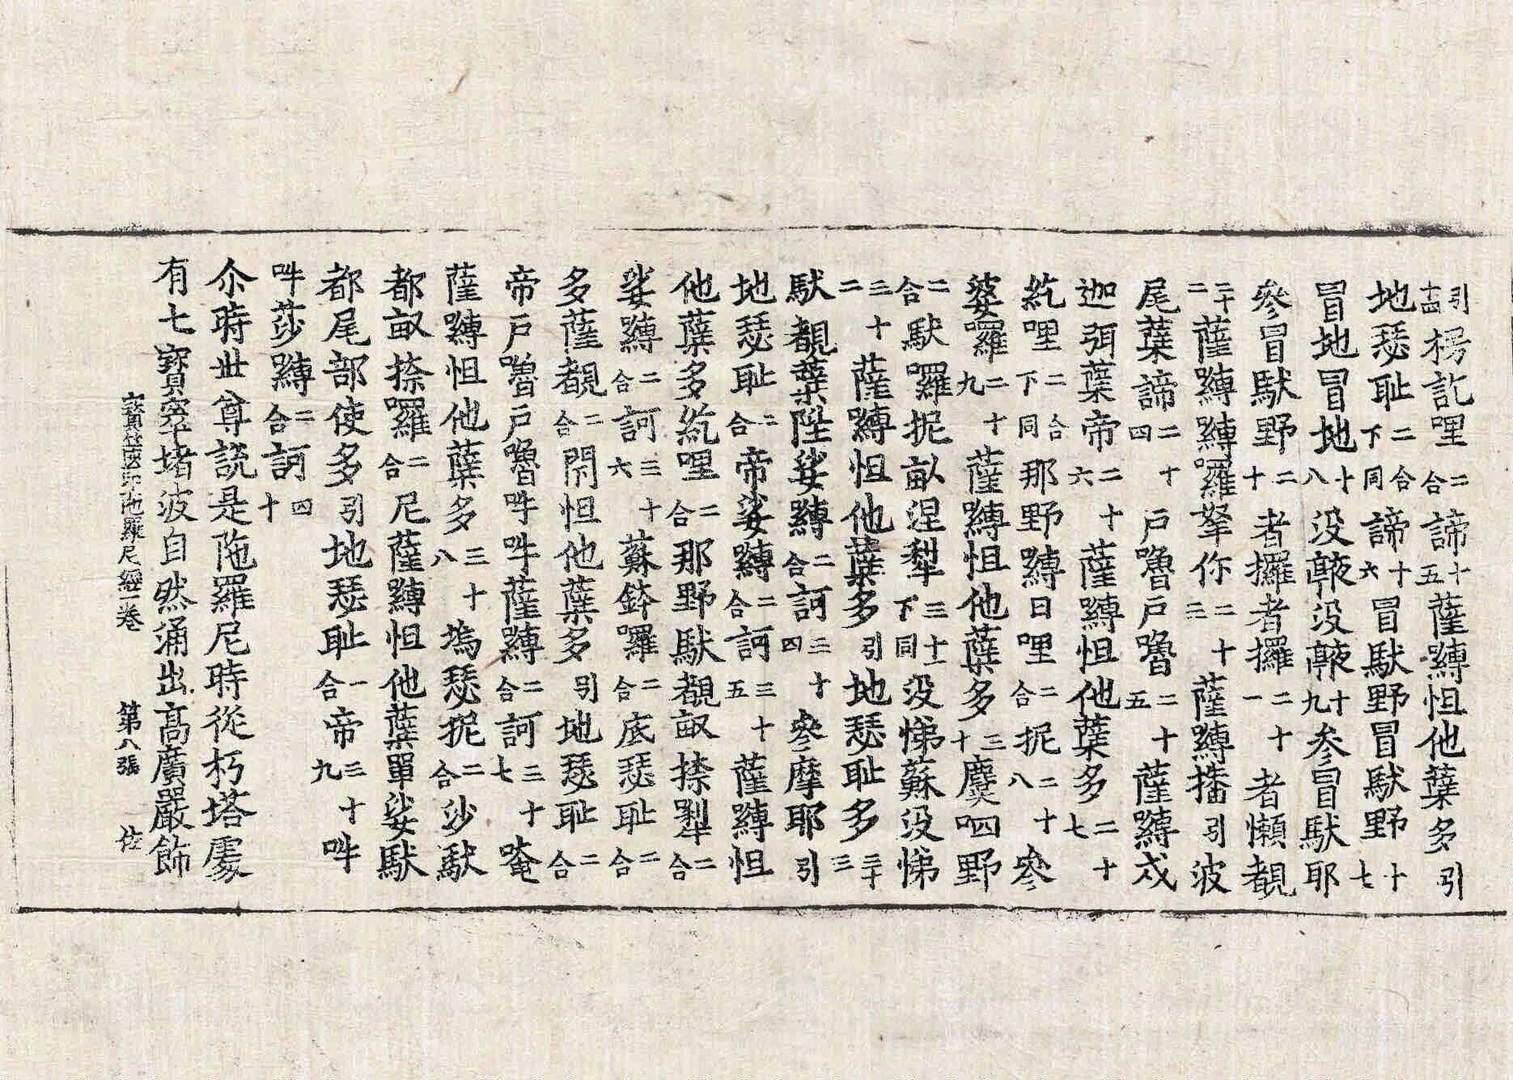 引十四楞訖哩二合諦十五薩嚩怛他蘗多引
地瑟耻二合下同諦十六冒馱野冒馱野十七
冒地冒地十八沒䭾沒䭾十九参冒馱耶
參冒馱野二十者攞者攞二十一者懶覩
二十二薩嚩嚩羅拏你二十三薩嚩播引波
尾蘗諦二十四戸嚕戸嚕二十五薩嚩戍
迦弭蘗帝二十六薩嚩怛他蘗多二十七
紇哩二合下同那野嚩日哩二合抳二十八參
婆囉二十九薩嚩怛他蘗多三十麌呬野
二合馱囉抳畝涅犁三十一下同沒悌蘇沒悌
三十二薩嚩怛他蘗多引地瑟耻多三十三
馱覩蘗陛娑嚩二合訶三十四參摩耶引
地瑟耻二合帝娑嚩二合訶三十五薩嚩怛
他蘗多紇哩二合那野馱覩畝捺犁二合
娑嚩二合訶三十六蘇鉢囉二合底瑟耻二合
多薩覩二合閇怛他蘗多引地瑟耻二合
帝戸嚕戸嚕吽吽薩嚩二合訶三十七唵
薩嚩怛他蘗多三十八塢瑟抳二合沙馱
都畝捺囉二合尼薩嚩怛他蘗單娑馱
都尾部使多引地瑟耻一合帝三十九吽
吽莎嚩二合訶四十
尒時世尊說是陁羅尼時從朽塔處
有七寶窣堵波自然涌出高廣嚴飾
寶篋印陁羅尼經一卷 第八張 㑅